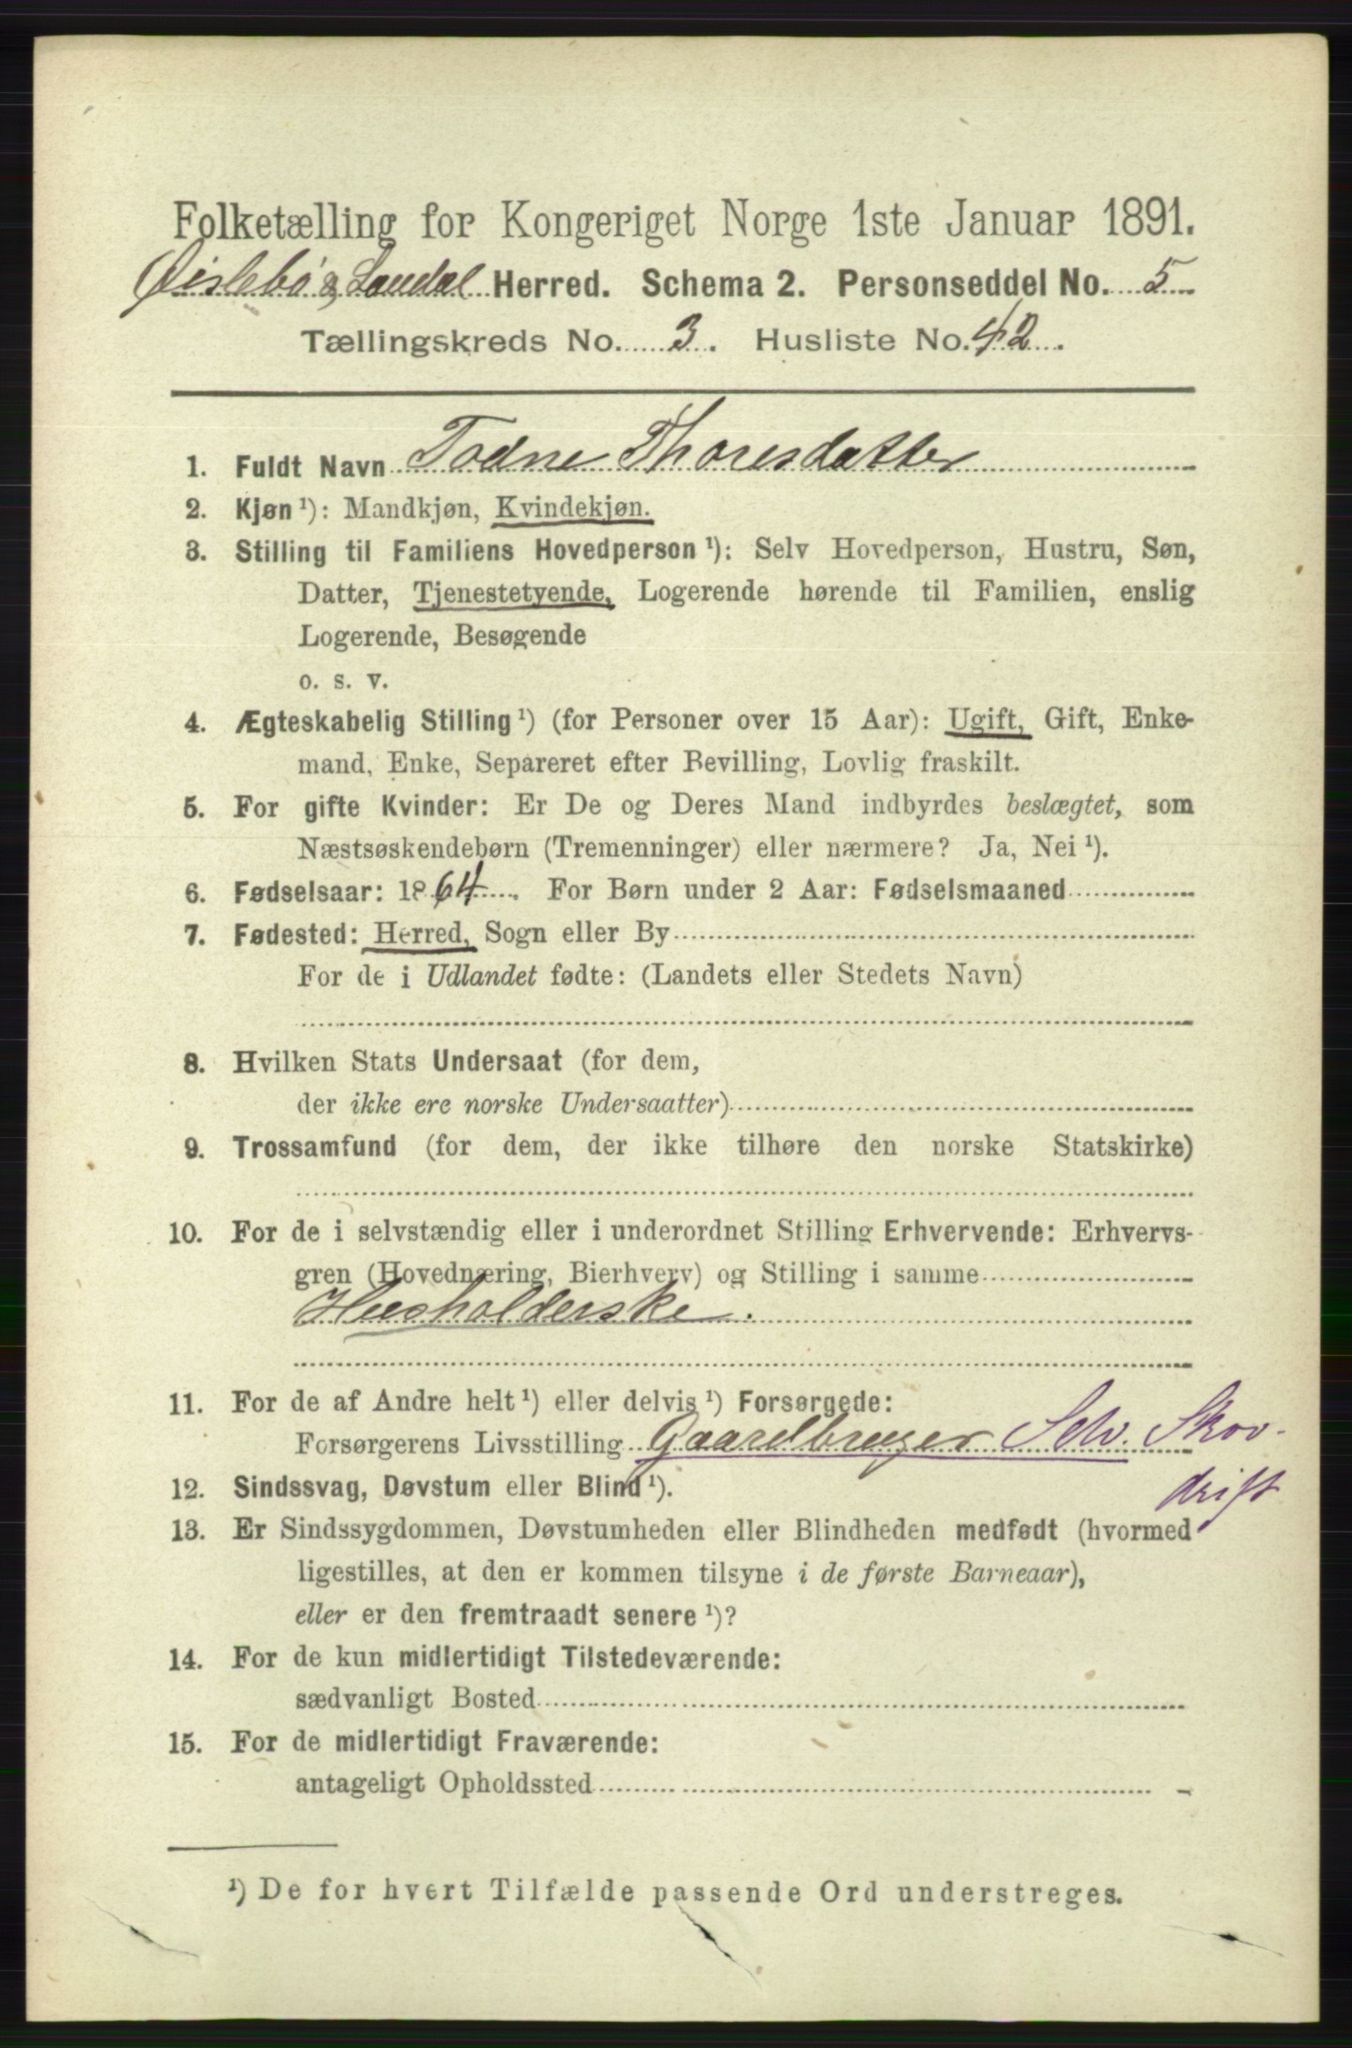 Folketælling for Kongeriget Norge 1ste Januar 1891.
Øislebø & Laudal Herred. Schema 2. Personseddel No. 5
Tællingskreds No. 3. Husliste No. 42.
1. Fuldt Navn Todne Thoresdatter
2. Kjøn ¹): Mandkjøn, Kvindekjøn.
3. Stilling til Familiens Hovedperson ¹): Selv Hovedperson, Hustru, Søn,
Datter, Tjenestetyende, Logerende hørende til Familien, enslig
Logerende, Besøgende
o. s. v.
4. Ægteskabelig Stilling ¹) (for Personer over 15 Aar): Ugift, Gift, Enke-
mand, Enke, Separeret efter Bevilling, Lovlig fraskilt.
5. For gifte Kvinder: Er De og Deres Mand indbyrdes beslægtet, som
Næstsøskendebørn (Tremenninger) eller nærmere? Ja, Nei ¹).
6. Fødselsaar: 1864. For Børn under 2 Aar: Fødselsmaaned
7. Fødested: Herred, Sogn eller By
For de i Udlandet fødte: (Landets eller Stedets Navn)
8. Hvilken Stats Undersaat (for dem,
der ikke ere norske Undersaatter)
9. Trossamfund (for dem, der ikke tilhøre den norske Statskirke)
10. For de i selvstændig eller i underordnet Stilling Erhvervende: Erhvervs-
gren (Hovednæring, Bierhverv) og Stilling i samme
Husholderske.
11. For de af Andre helt ¹) eller delvis ¹) Forsørgede:
Forsørgerens Livsstilling Gaardbruger Selv. Skov-
drift
12. Sindssvag, Døvstum eller Blind ¹).
13. Er Sindssygdommen, Døvstumheden eller Blindheden medfødt (hvormed
ligestilles, at den er kommen tilsyne i de første Barneaar),
eller er den fremtraadt senere ¹)?
14. For de kun midlertidigt Tilstedeværende:
sædvanligt Bosted
15. For de midlertidigt Fraværende:
antageligt Opholdssted
¹) De for hvert Tilfælde passende Ord understreges.